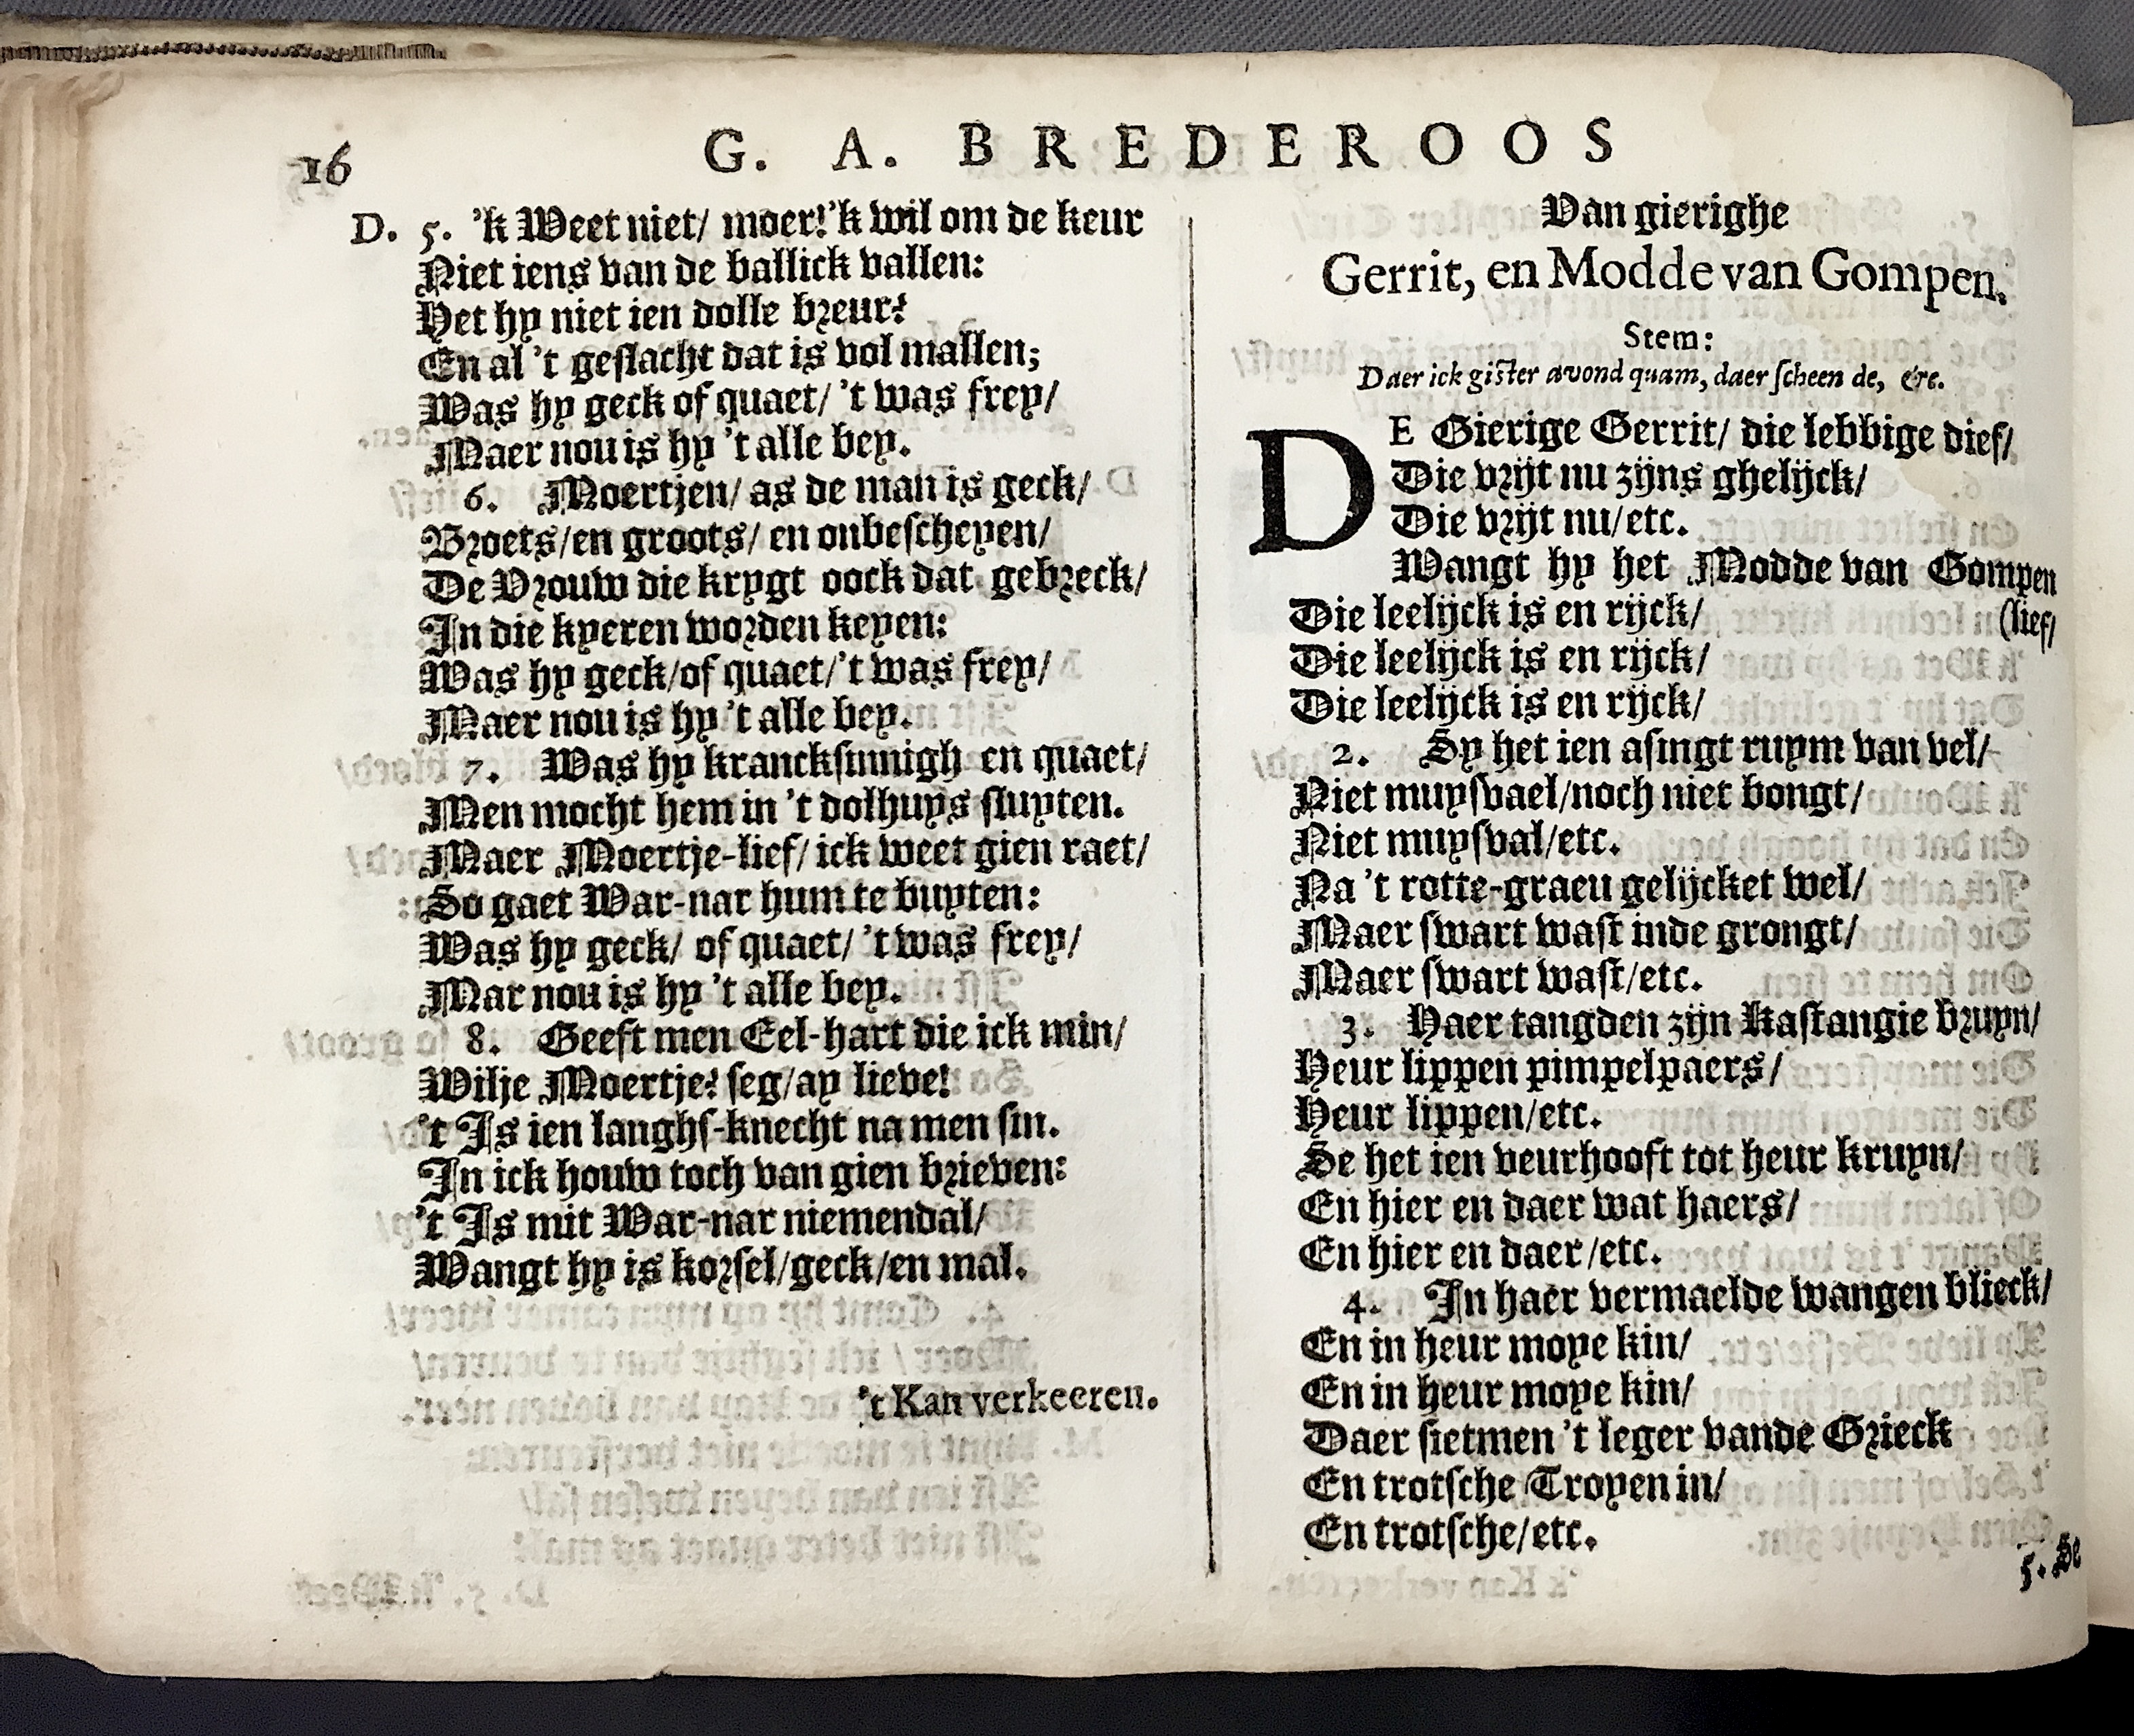 16
G. A. BREDEROOS
D. 5. 'k Weet niet/ moer! 'k wil om de keur
Niet iens van de ballick vallen:
Het hy niet ien dolle breur?
En al 't geslacht dat is vol mallen;
Was hy geck of quaet/ 't was frey/
Maer nou is hy 't alle bey.
6. Moertjen/ as de man is geck/
Broets/en groots/ en onbescheyen/
De Vrouw die krygt oock dat gebreck/
In die kyeren worden keyen:
Was hy geck/of quaet/'t was frey/
Maer nou is hy 't alle bey.
7. Was hy krancksinnigh en quaet/
Men mocht hem in 't dolhuys sluyten.
Maer Moertje-lief/ ick weet gien raet/
So gaet War-nar hum te buyten:
Was hy geck/ of quaet/ 't was frey/
Mar nou is hy 't alle bey.
8. Geeft men Eel-hart die ick min/
Wilje Moertje? seg/ay lieve!
't Is ien langhs-knecht na men sin.
In ick houw toch van gien brieven:
't Is mit War-nar niemendal/
Wangt hy is korsel/geck/en mal.
't Kan verkeeren.
Van gierighe
Gerrit, en Modde van Gompen.
Stem:
Daer ick gister avond quam, daer scheen de, &c.
DE Gierige Gerrit/ die lebbige dief/
Die vrijt nu zijns ghelijck/
Die vrijt nu/etc.
Wangt hy het Modde van Gompen
(lief/
Die leelijck is en rijck/
Die leelijck is en rijck/
Die leelijck is en rijck/
2. Sy het ien asingt ruym van vel/
Niet muysvael/noch niet bongt/
Niet muysval/etc.
Na 't rotte-graeu gelijcket wel/
Maer swart wast inde grongt/
Maer swart wast/etc.
3. Haer tangden zijn Kastangie bruyn/
Heur lippen pimpelpaers/
Heur lippen/etc.
Se het ien veurhooft tot heur kruyn/
En hier en daer wat haers/
En hier en daer/etc.
4. In haer vermaelde wangen blieck/
En in heur moye kin/
En in heur moye kin/
Daer sietmen 't leger vande Grieck
En trotsche Troyen in/
En trotsche/etc.
5. Se